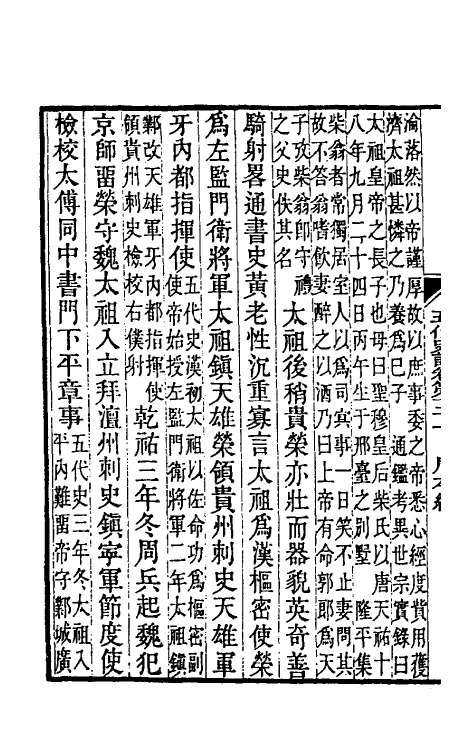 淪落然以帝謹厚故以庶事委之帝悉心經度貲用獲
濟太祖甚憐之乃養爲已子　通鑑考異世宗實錄曰
太祖皇帝之長子也母曰聖穆皇后柴氏以唐天祐十
八年九月二十四日丙午生于邢臺之别墅　隆平集
柴翁者常獨居室人以爲司冥事一日笑不止妻問其
故不答翁嗜飲妻醉之以酒乃曰上帝有命郭郎爲天
子攷柴翁卽守禮
之父史佚其名
太祖後稍貴榮亦壯而器貌英奇善
騎射畧通書史黃老性沉重寡言太祖爲漢樞密使榮
爲左監門衛將軍太祖鎮天雄榮領貴州刺史天雄軍
牙內都指揮使
五代史漢初太祖以佐命功爲樞密副
使帝始授左監門衛將軍二年太祖鎮
鄴改天雄軍牙內都指揮使
領貴州刺史檢校右僕射
乾祐三年冬周兵起魏犯
京師畱榮守魏太祖入立拜澶州刺史鎮寧軍節度使
檢校太傅同中書門下平章事
五代史三年冬太祖入
平內難畱帝守鄴城廣